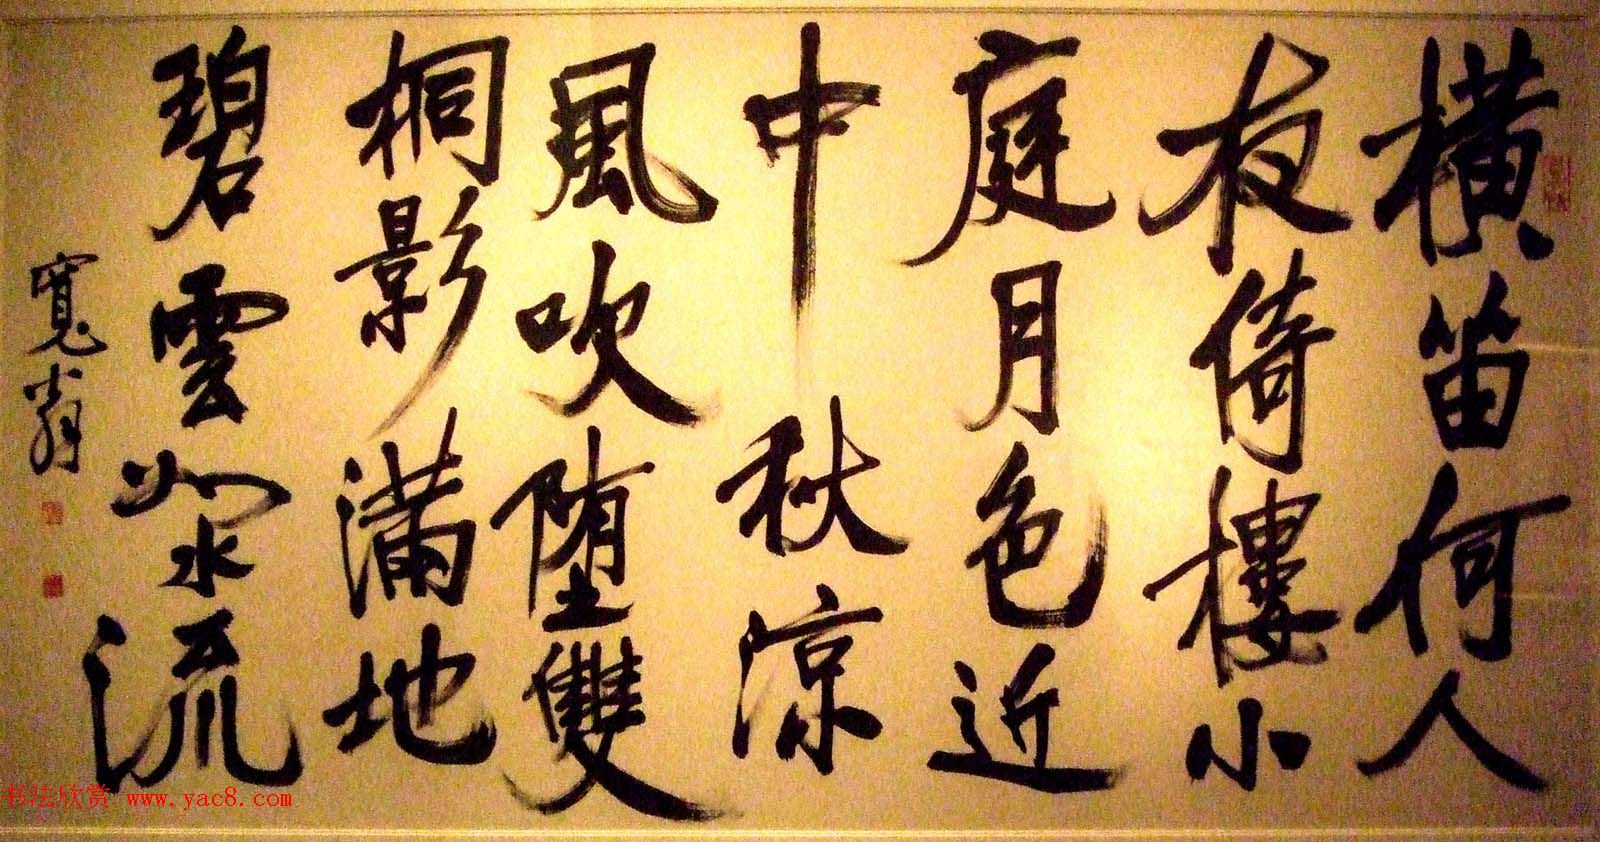 橫笛何人
夜倚樓小
庭月色近
中秋涼
風吹堕雙
桐影滿地
碧雲如水流
寬翁
书法欣赏 www.yac8.com